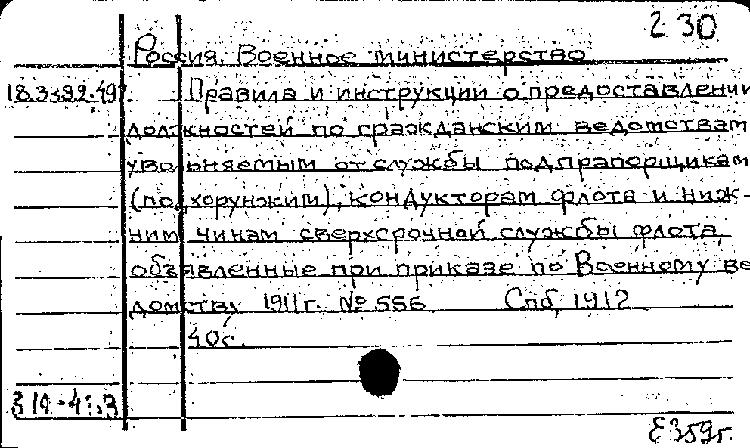 230
Россия. Военное министерство
Правила и инструкции о предоставлении
должностей по гражданским ведомствам
увольняемым от службы подпрапорщикам
(подхорунжим), кондукторам флота и ниж-
ним чинам сверхсрочной службы флота,
объявленные при приказе по Военному ве
домству 1911 г. № 556 Спб, 1912
40с.
Е359г.